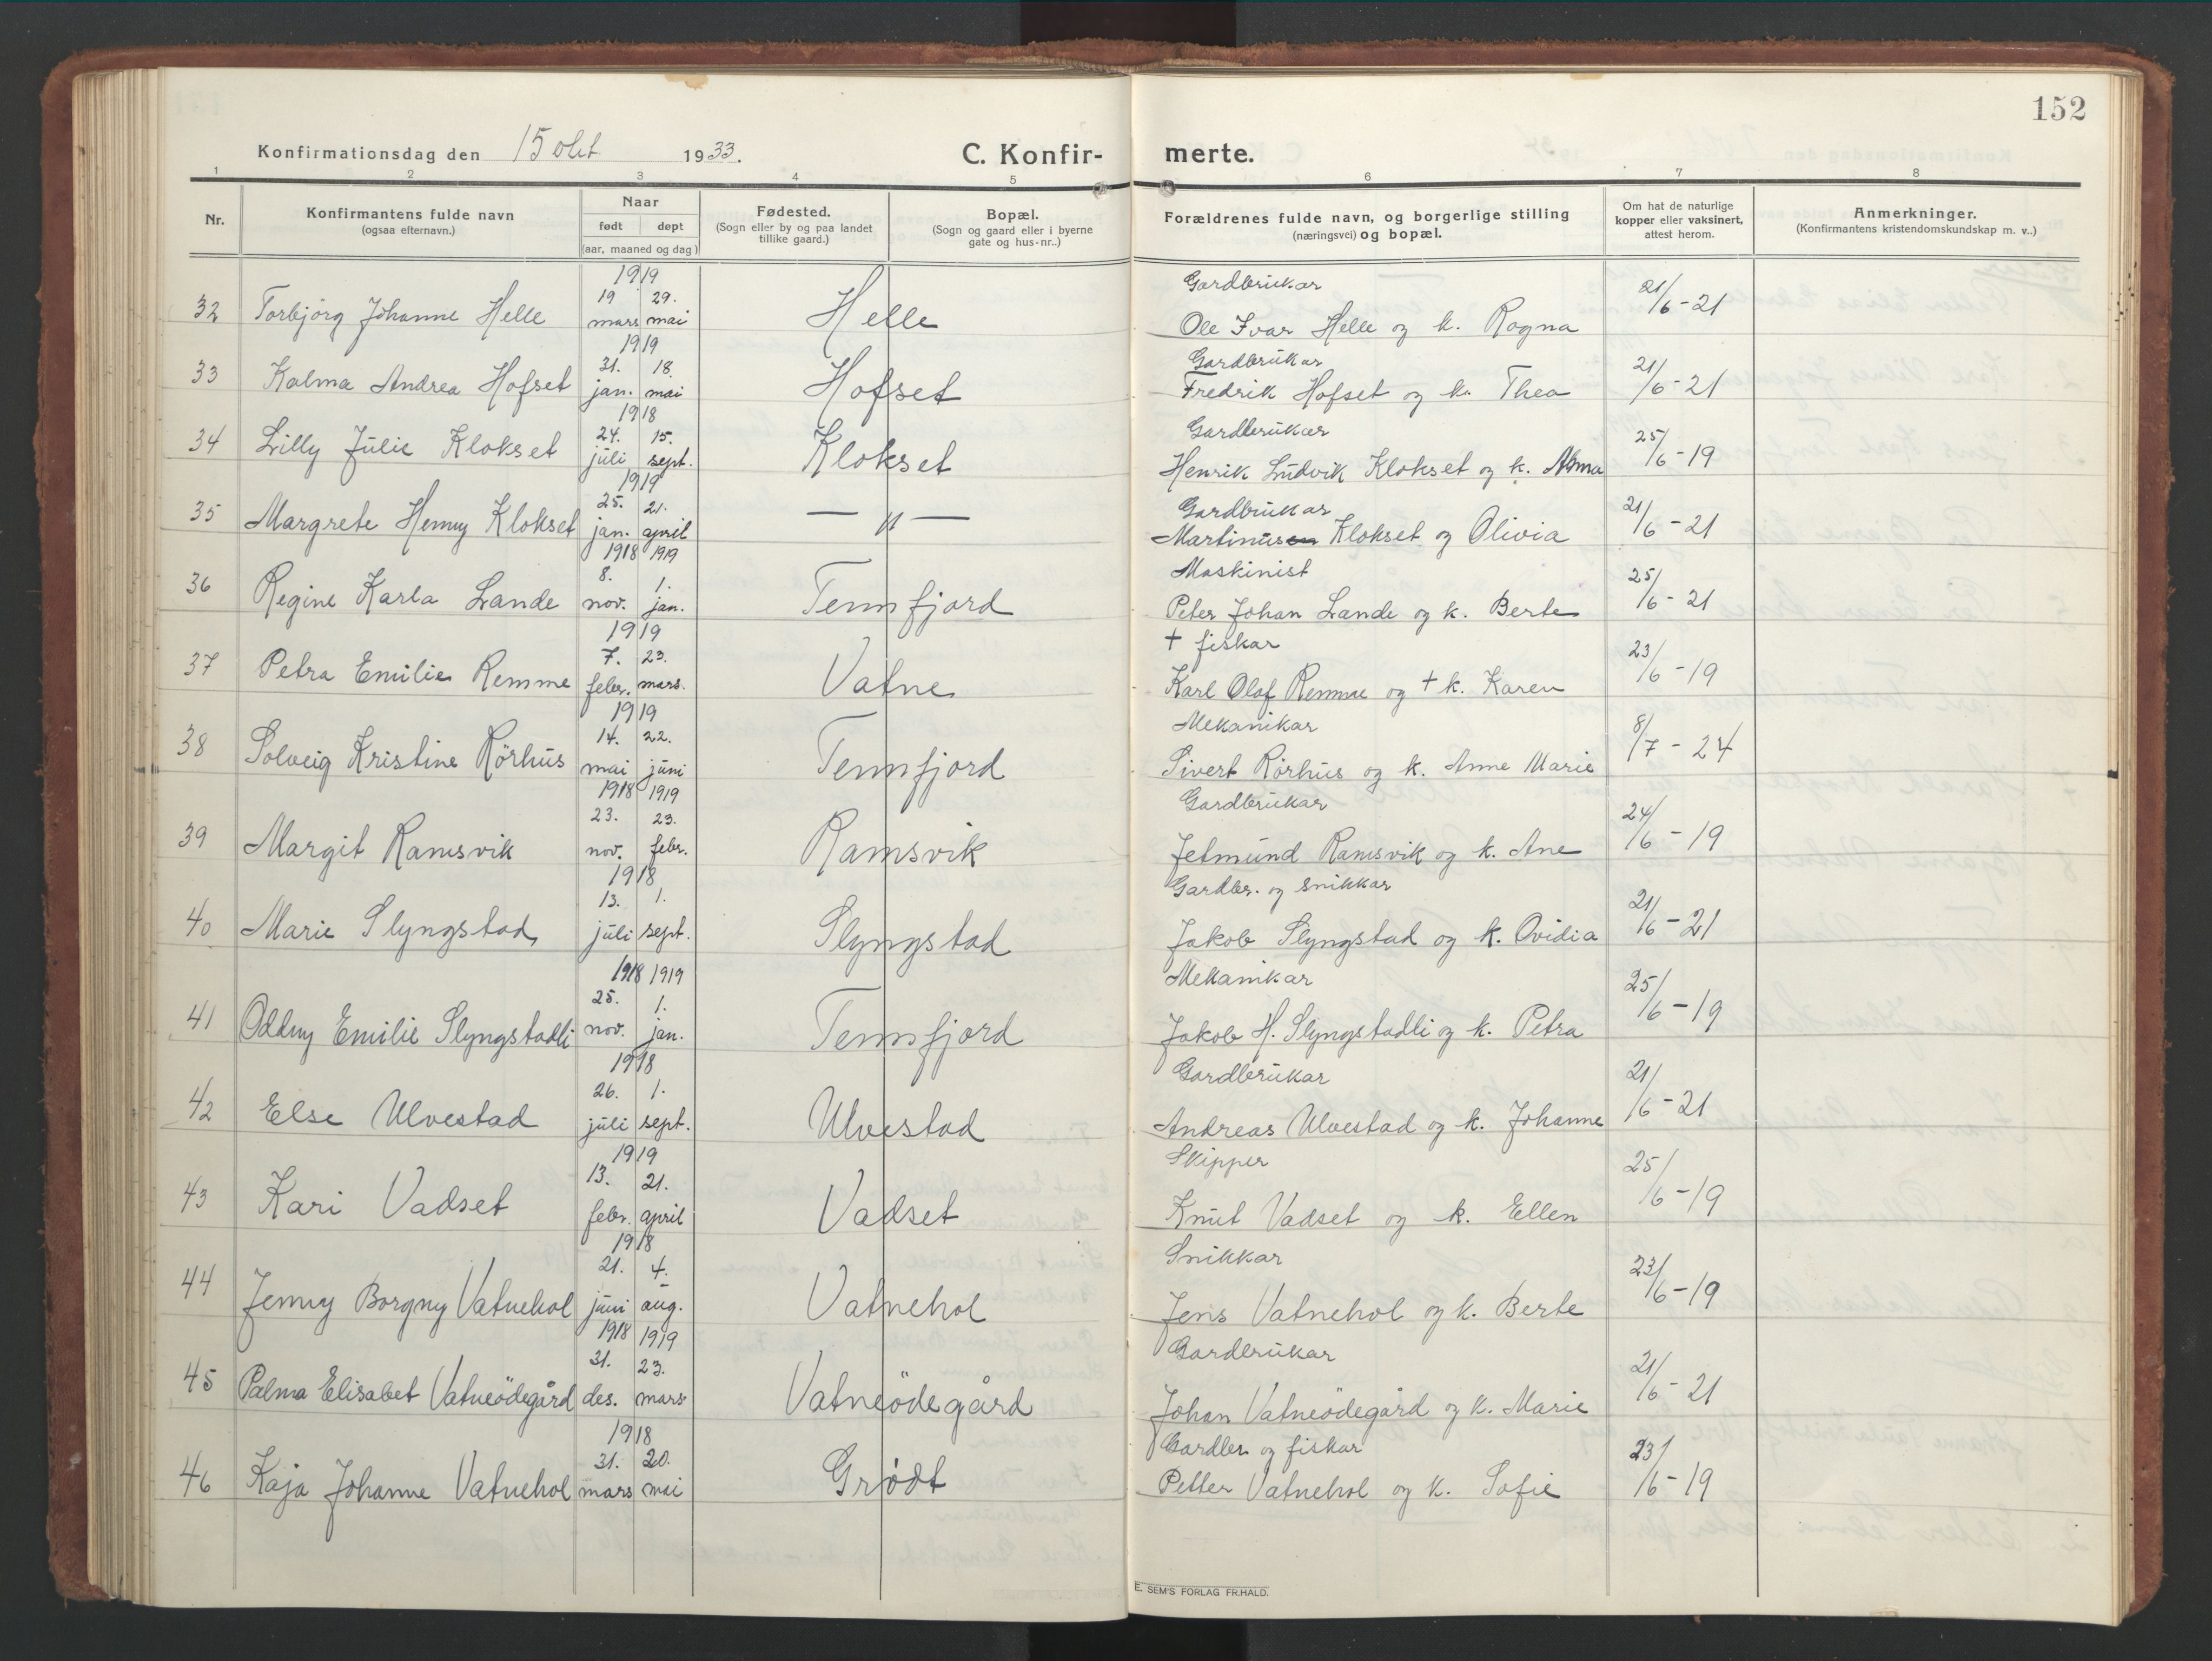 152
Konfirmationsdag den 15 okt 1933. C. Konfir- merte.
1 2 3 4 5 6 7 8
Nr.
Konfirmantens fulde navn
(ogsaa efternavn.)
Naar
født døpt
(aar, maaned og dag)
Fødested.
(Sogn eller by og paa landet
tillike gaard.)
Bopæl.
(Sogn og gaard eller i byerne
gate og hus-nr..)
Forældrenes fulde navn, og borgerlige stilling
(næringsvei) og bopæl.
Om hat de naturlige
kopper eller vaksinert,
attest herom.
Anmerkninger.
(Konfirmantens kristendomskundskap m. v..)
1919 Gardbrukar
19 29. 21/6-21
32 Torbjörg Johanne Helle mars mai Helle Ole Ivar Helle og k. Ragna
1919 Gardbrukar
31. 18. 21/6-21
33 Kalma Andrea Hofset jan. mai Hofset Fredrik Hofset og k. Thea
1918 Gardbrukar
24. 15. 25/6-19
34 Lilly Julie Klokset juli sept. Klokset Henrik Ludvik Klokset og k. Alma
1919 Gardbrukar
25. 21. 21/6-21
35 Margrete Henny Klokset jan. april — " — Martinus Klokset og Olivia
1918 1919 Maskinist
8. 1. 25/6-21
36 Regine Karla Lande nov. jan. Tennfjord Peter Johan Lande og k. Berte
1919 + fiskar
7. 23. 23/6-19
37 Petra Emilie Remme febr. mars. Vatne Karl Olaf Remme og + k. Karen
1919 Mekanikar
14. 22. 8/7-24
38 Solveig Kristine Rörhus mai juni Tennfjord Sivert Rörhus og k. Anne Marie
1918 1919 Gardbrukar
23. 23. 24/6-19
39 Margit Ramsvik nov. febr. Ramsvik Jetmund Ramsvik og k. Ane
1918 Gardbr. og snikkar
13. 1. 21/6-21
40 Marie Slyngstad juli sept. Slyngstad Jakob Slyngstad og k. Ovidia
1918 1919 Mekanikar
25. 1. 25/6-19
41 Oddny Emilie Slyngstadli nov. jan. Tennfjord Jakob H. Slyngstadli og k. Petra
1918 Gardbrukar
26. 1. 21/6-21
42 Else Ulvestad juli sept. Ulvestad Andreas Ulvestad og k. Johanne
1919 Skipper
13. 21. 25/6-19
43 Kari Vadset febr. april Vadset Knut Vadset og k. Ellen
1918 Snikkar
21. 4. 23/6-19
44 Jenny Borgny Vatnehol juni aug. Vatnehol Jens Vatnehol og k. Berte
1918 1919 Gardbrukar
31. 23. 21/6-21
45 Palma Elisabet Vatneödegård des. mars Vatneödegård Johan Vatneödegård og k. Marie
1918 Gardbr. og fiskar
31. 20. 23/6-19
46 Kaja Johanne Vatnehol mars mai Grødt Petter Vatnehol og k. Sofie
E. SEM'S FORLAG FR.HALD.